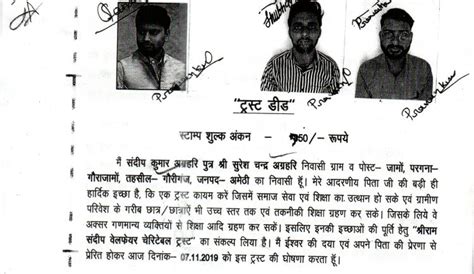 "ट्रस्ट डीड"
स्टाम्प शुल्क अंकन - 750/- रूपये
मैं संदीप कुमार अग्रहरि पुत्र श्री सुरेश चन्द्र अग्रहरि निवासी ग्राम व पोस्ट- जामों, परगना-
गौराजामों, तहसील- गौरीगंज, जनपद- अमेठी का निवासी हूँ। मेरे आदरणीय पिता जी की बड़ी ही
हार्दिक इच्छा है, कि एक ट्रस्ट कायम करें जिसमें समाज सेवा एवं शिक्षा का उत्थान हो सके एवं ग्रामीण
परिवेश के गरीब छात्र/छात्राऐं भी उच्च स्तर तक एवं तकनीकी शिक्षा ग्रहण कर सके। जिसके लिये वे
अक्सर गणमान्य व्यक्तियों से शिक्षा आदि ग्रहण किये। इसलिए इनकी इच्छाओं की पूर्ति हेतु "श्रीराम
संदीप वेलफेयर चेरिटेबल ट्रस्ट" का संकल्प लिया है। मैं ईश्वर की दया एवं अपने पिता की प्रेरणा से
प्रेरित होकर आज दिनांक- 07.11.2019 को इस ट्रस्ट की घोषणा करता हूँ।